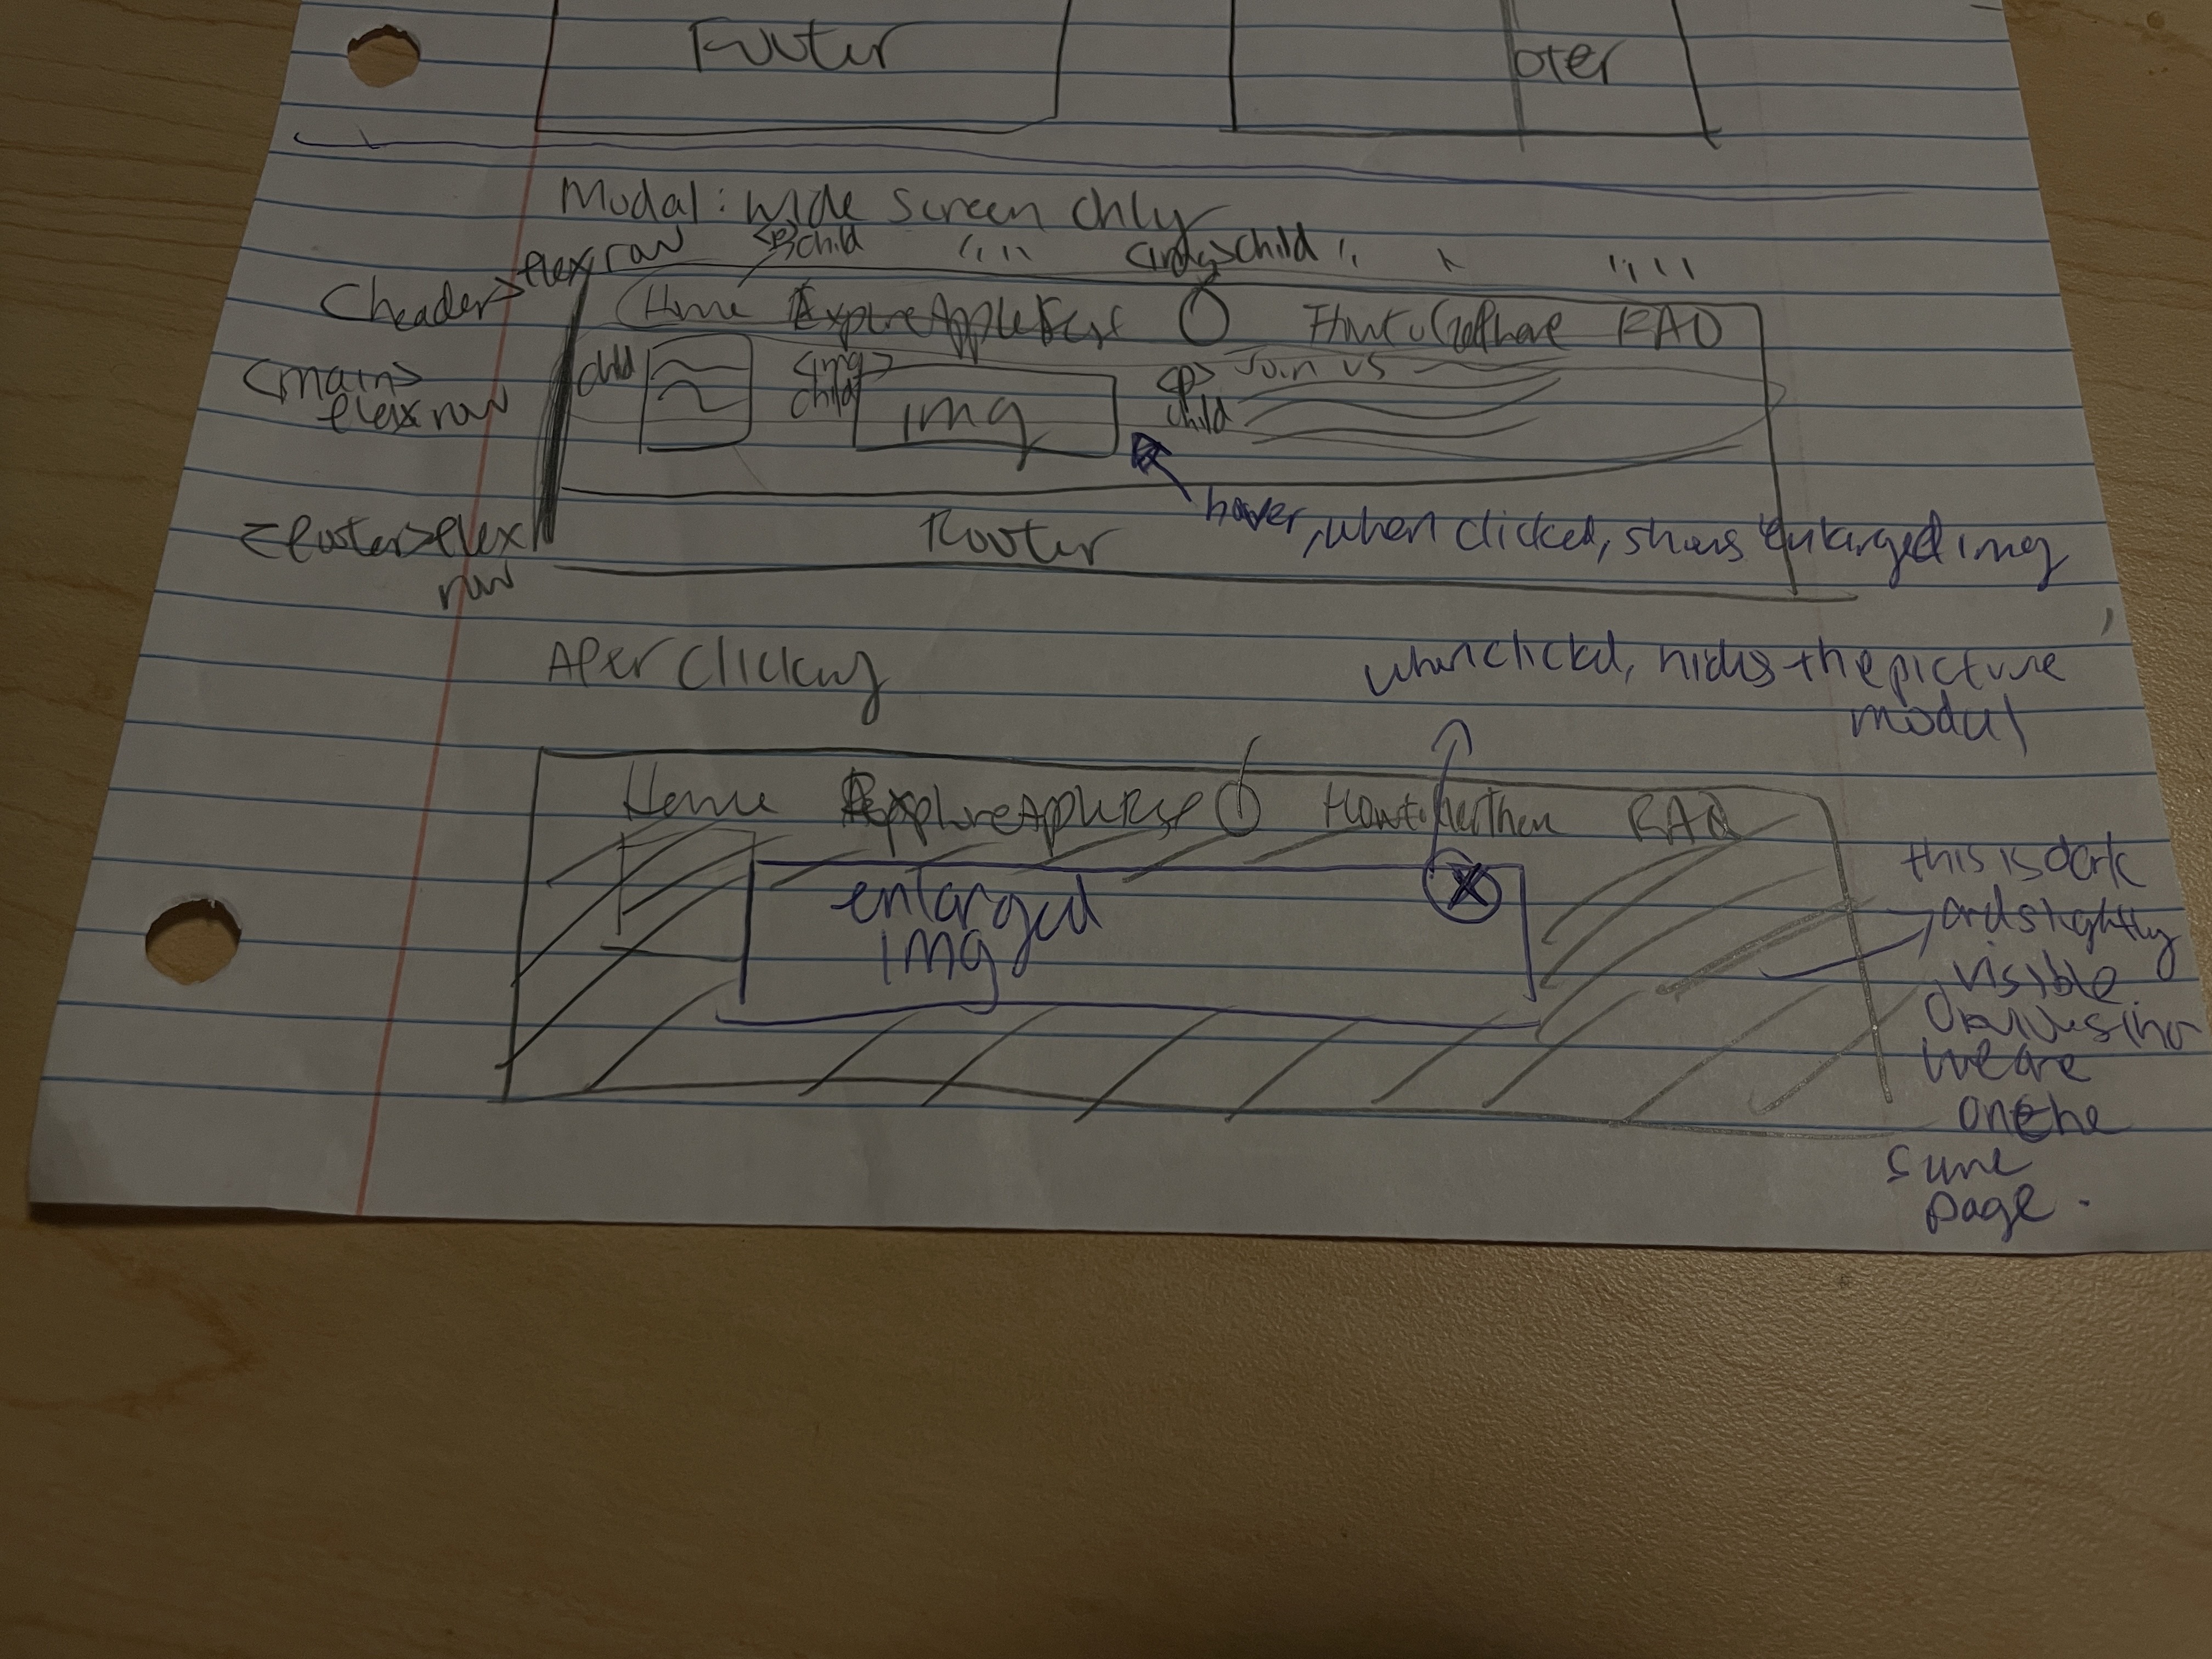 Footer
oter
Modal: wide screen only
<header> flex row <p> child " " <img> child " " " "
Home Explore AppleFest How to Get here FAQ
<main> flex row
child <img> child img <p> child Join us
hover, when clicked, shows enlarged img
<footer> flex row
Footer
After Clicking
when clicked, hides the picture
modal
Home Explore AppleFest FAQ
enlarged
img
X
this is dark
and slightly
visible
we are
on the
same
page.